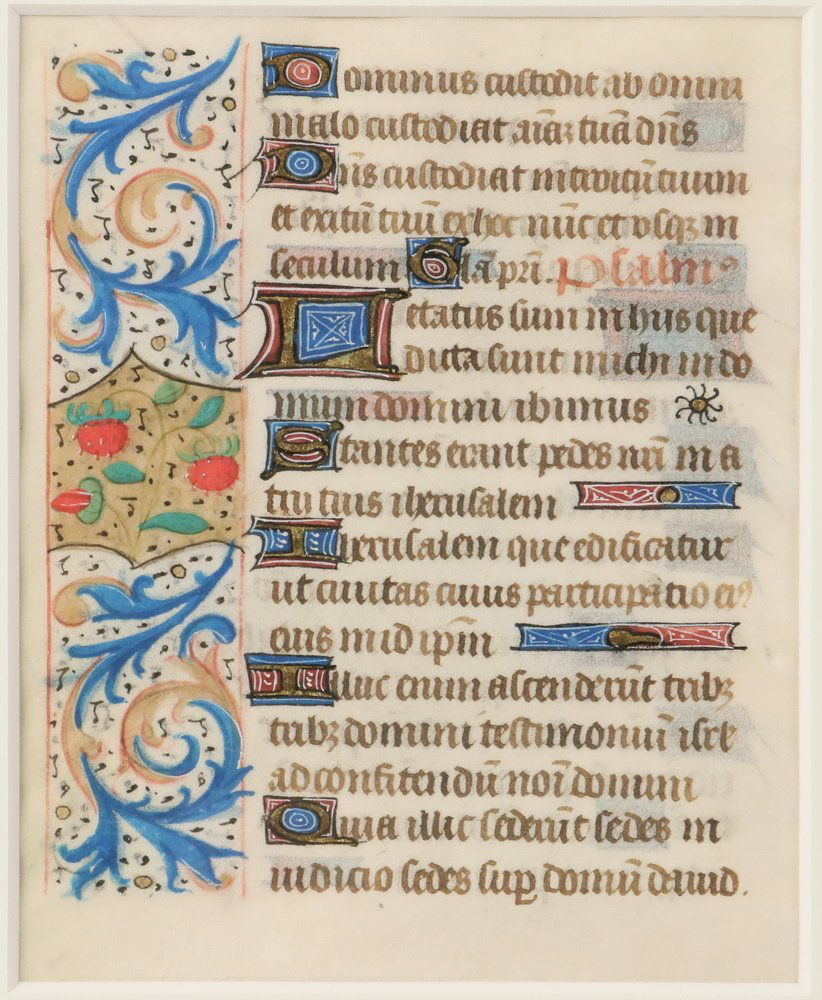 Dominus custodit ab omni
malo custodiat aīaꝫ tuā dñs
Dñs custodiat introitū tuum
et exitū tuū ex hoc nūc et vsqꝫ in
seculum Gl'a pr̄i. Psalmꝰ
Letatus sum in hiis que
dicta sunt michi in do
mum domini ibimus
Stantes erant pedes nr̄i in a
triis tuis iherusalem
Iherusalem que edificatur
ut ciuitas cuius participatio
eius in id ip̄m
Illuc enim ascenderūt tribꝫ
tribꝫ domini testimoniū isrl'
ad confitendū noī domini
Quia illic sederūt sedes in
iudicio sedes suꝑ domū dauid.